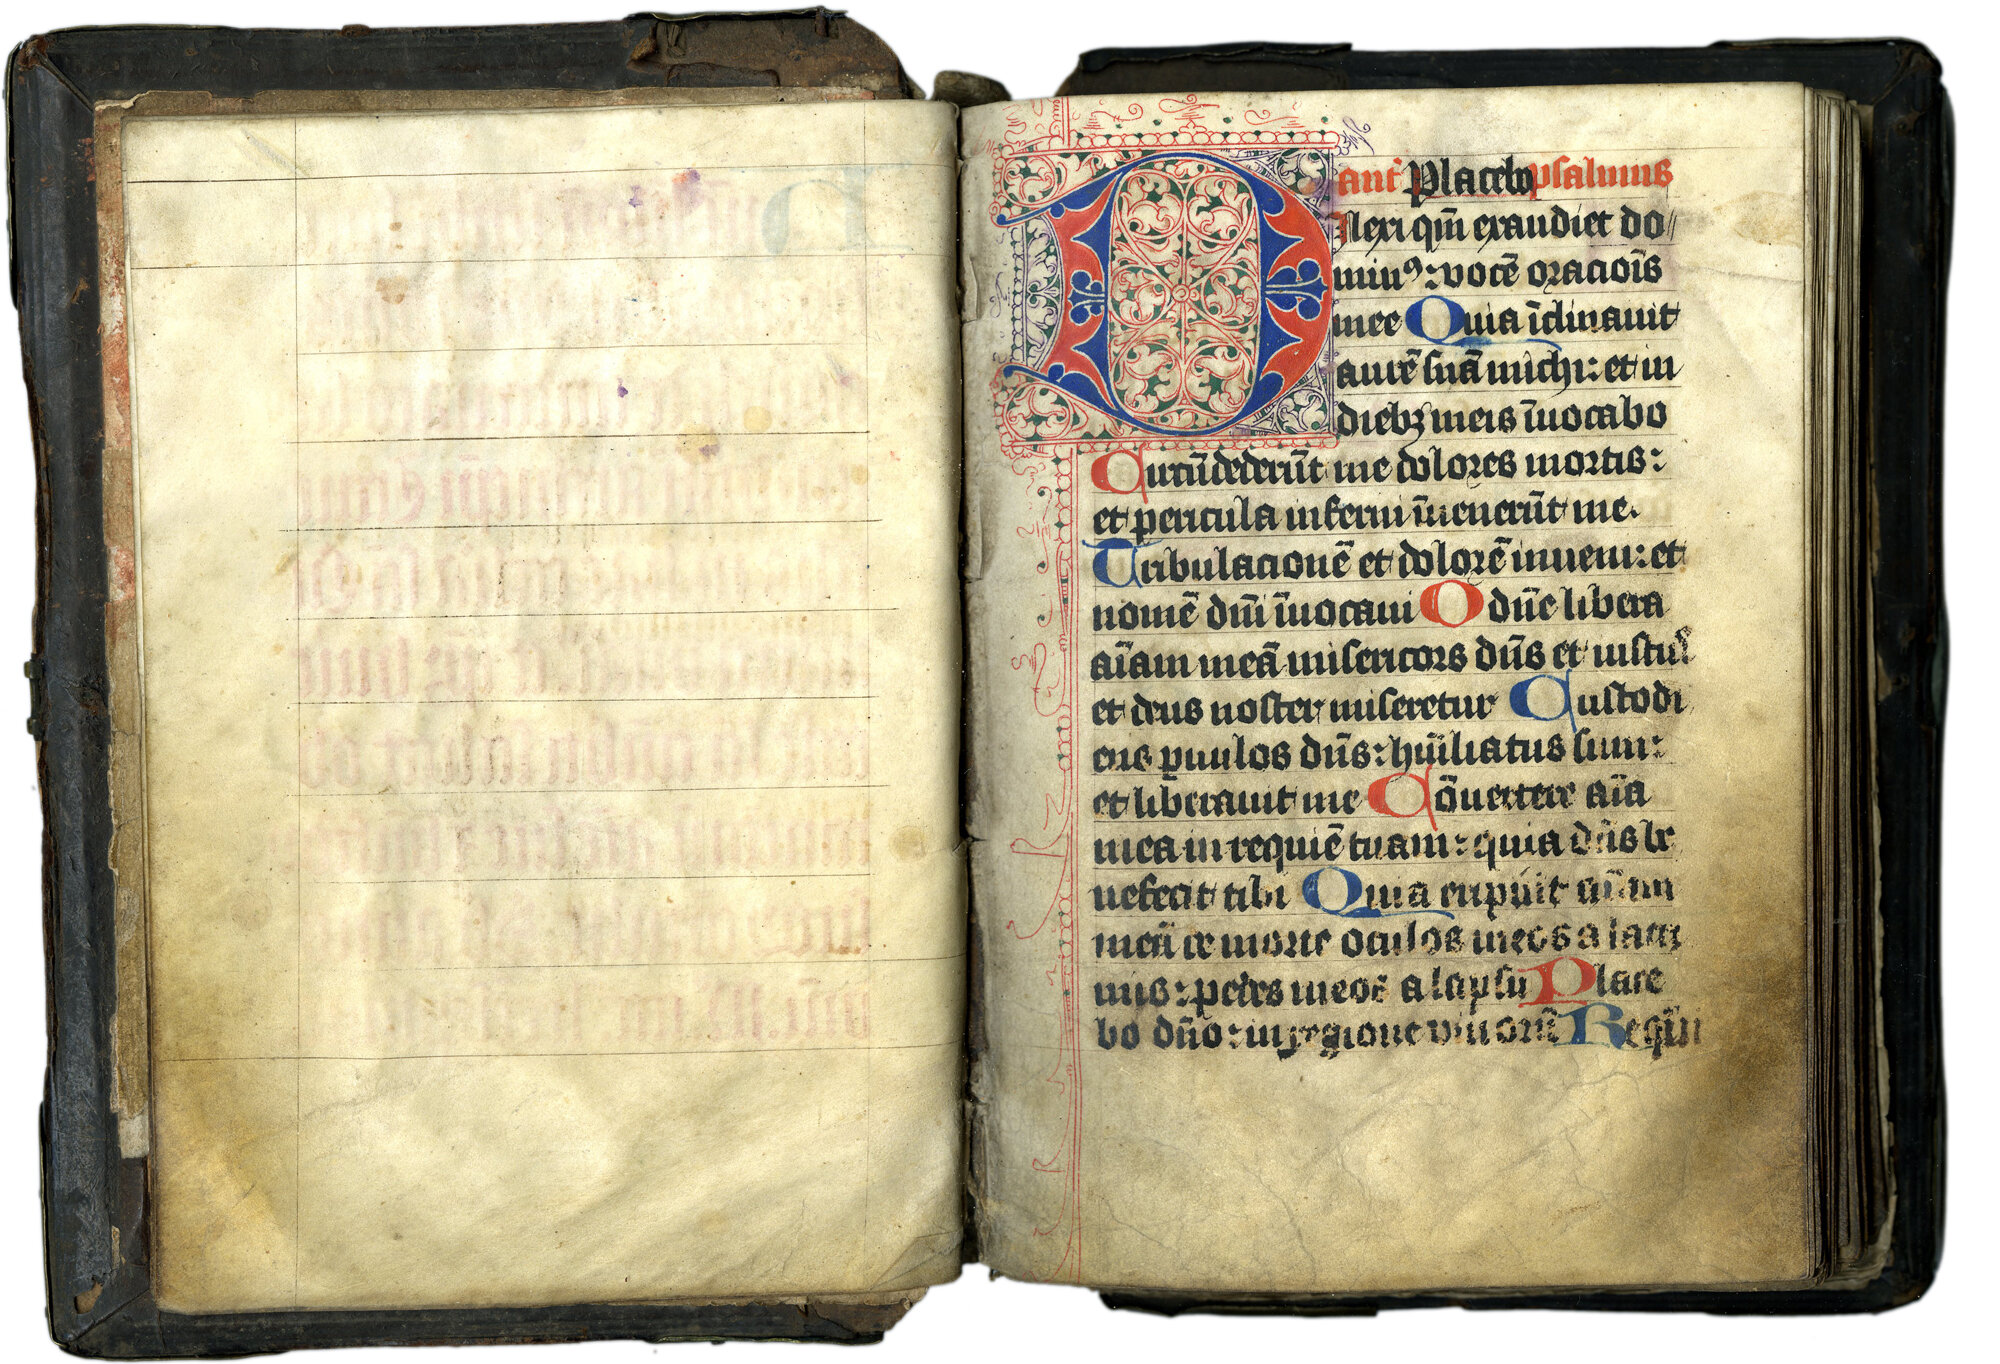 D ant̄ Placebo psalmus
ilexi qm̄ exaudiet do//
minꝰ: vocē oraciōis
mee Quia īclinauit
aurē suā michi: et in
diebꝫ meis īuocabo
Circūdederūt me dolores mortis:
et pericula inferni īuenerūt me.
Tribulacionē et dolorē inueni: et
nomē dn̄i īuocaui O dn̄e libera
aīam meā misericors dn̄s et iustus
et deus noster miseretur Custodi
ens puulos dn̄s: hūiliatus sum:
et liberauit me Cōuertere aīa
mea in requiē tuam: quia dn̄s be
nefecit tibi Quia eripuit aīam
meā de morte oculos meos a lacri
mis: pedes meos a lapsu Place
bo dn̄o: in regione viuorū Requi